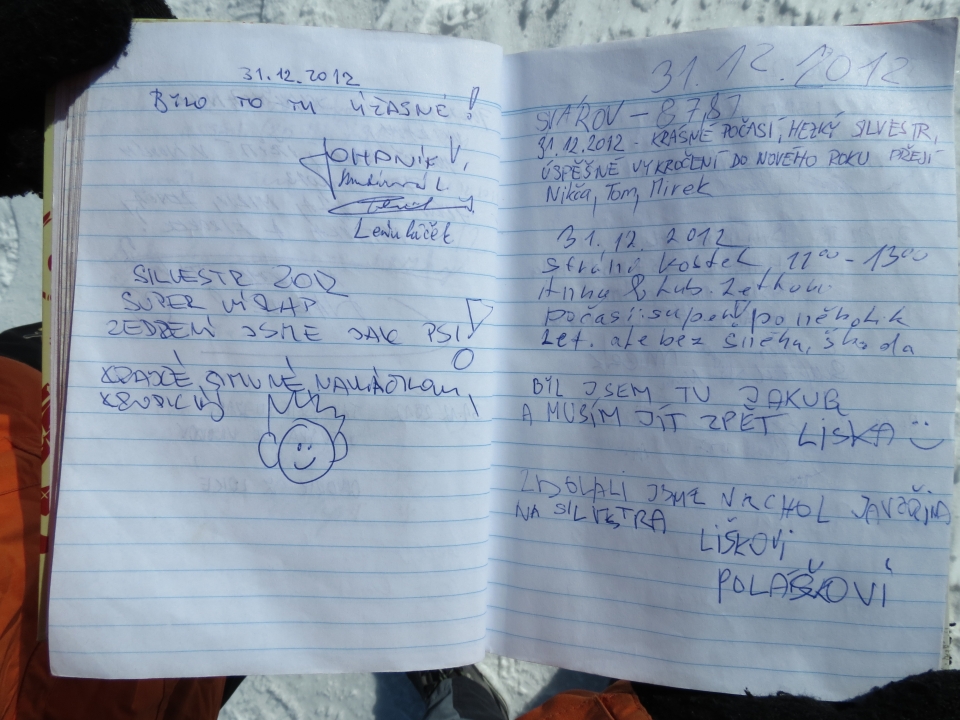 31.12.2012
BYLO TO TU ÚŽASNÉ!
JOHANIK V.
SILVESTR 2012
SUPER VÝŠLAP
ZEDŘENÍ JSME JAK PSI!
31.12.2012
SVÁROV - 8781
31.12.2012 - KRÁSNÉ POČASÍ, HEZKÝ SILVESTR,
ÚSPĚŠNÉ VYKROČENÍ DO NOVÉHO ROKU PŘEJÍ
Nikča, Tom, Mirek
31.12. 2012
kostek, 11⁰⁰ - 13⁰⁰
Anna & Lub.
počasí: super po několik
let. ale bez sněhu, škoda
BYL JSEM TU JAKUB
A MUSÍM JÍT ZPĚT LIŠKA
ZDOLALI JSME VRCHOL JAVOŘINA
NA SILVESTRA
LIŠKOVI
POLÁŠKOVI